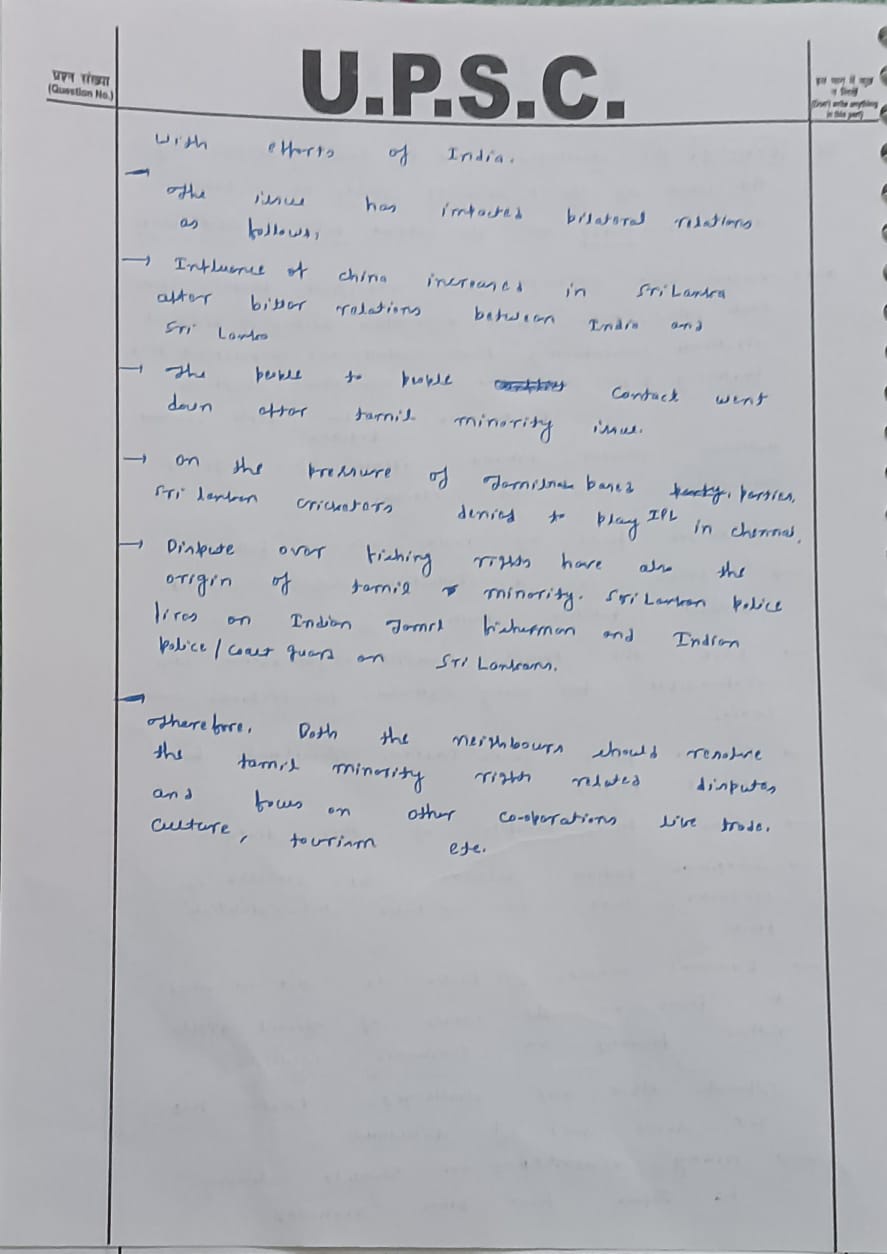 प्रश्न संख्या
(Question No.)
U.P.S.C.
इस भाग में कुछ
न लिखें
(Don't write anything
in this part)
with efforts of India.
The issue has impacted bilateral relations
as follows,
→ Influence of china increased in Sri Lanka
after bitter relations between India and
Sri Lanka
→ The people to people contact went
down after tamil minority issue.
→ on the pressure of Tamilnadu based party, parties,
Sri lankan cricketers denied to play IPL in chennai.
→ Dispute over fishing rights have also the
origin of tamil minority. Sri Lankan police
fires on Indian Tamil fisherman and Indian
police/coast guard on Sri Lankans.
Therefore, Both the neighbours should resolve
the tamil minority right related disputes
and focus on other co-operations like trade,
culture, tourism etc.